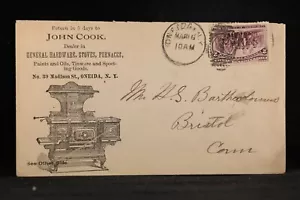 Return in 5 days to
JOHN COOK,
Dealer in
GENERAL HARDWARE, STOVES, FURNACES,
Paints and Oils, Tinware and Sport-
ing Goods.
No. 29 Madison St., ONEIDA, N. Y.
ONEIDA N.Y.
10 AM
Mr H. S. Bartholomew
Bristol
Conn